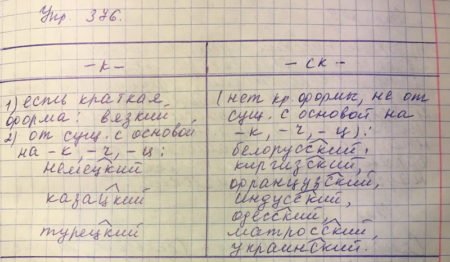 Упр. 376.
-к-
-ск-
1) есть краткая
форма: вязкий
2) от сущ. с основой
на -к, -ч, -ц:
немецкий
казацкий
турецкий
(нет кр. форм, не от
сущ. с основой на
-к, -ч, -ц):
белорусский,
киргизский,
французский,
индусский,
одесский,
матросский,
украинский.